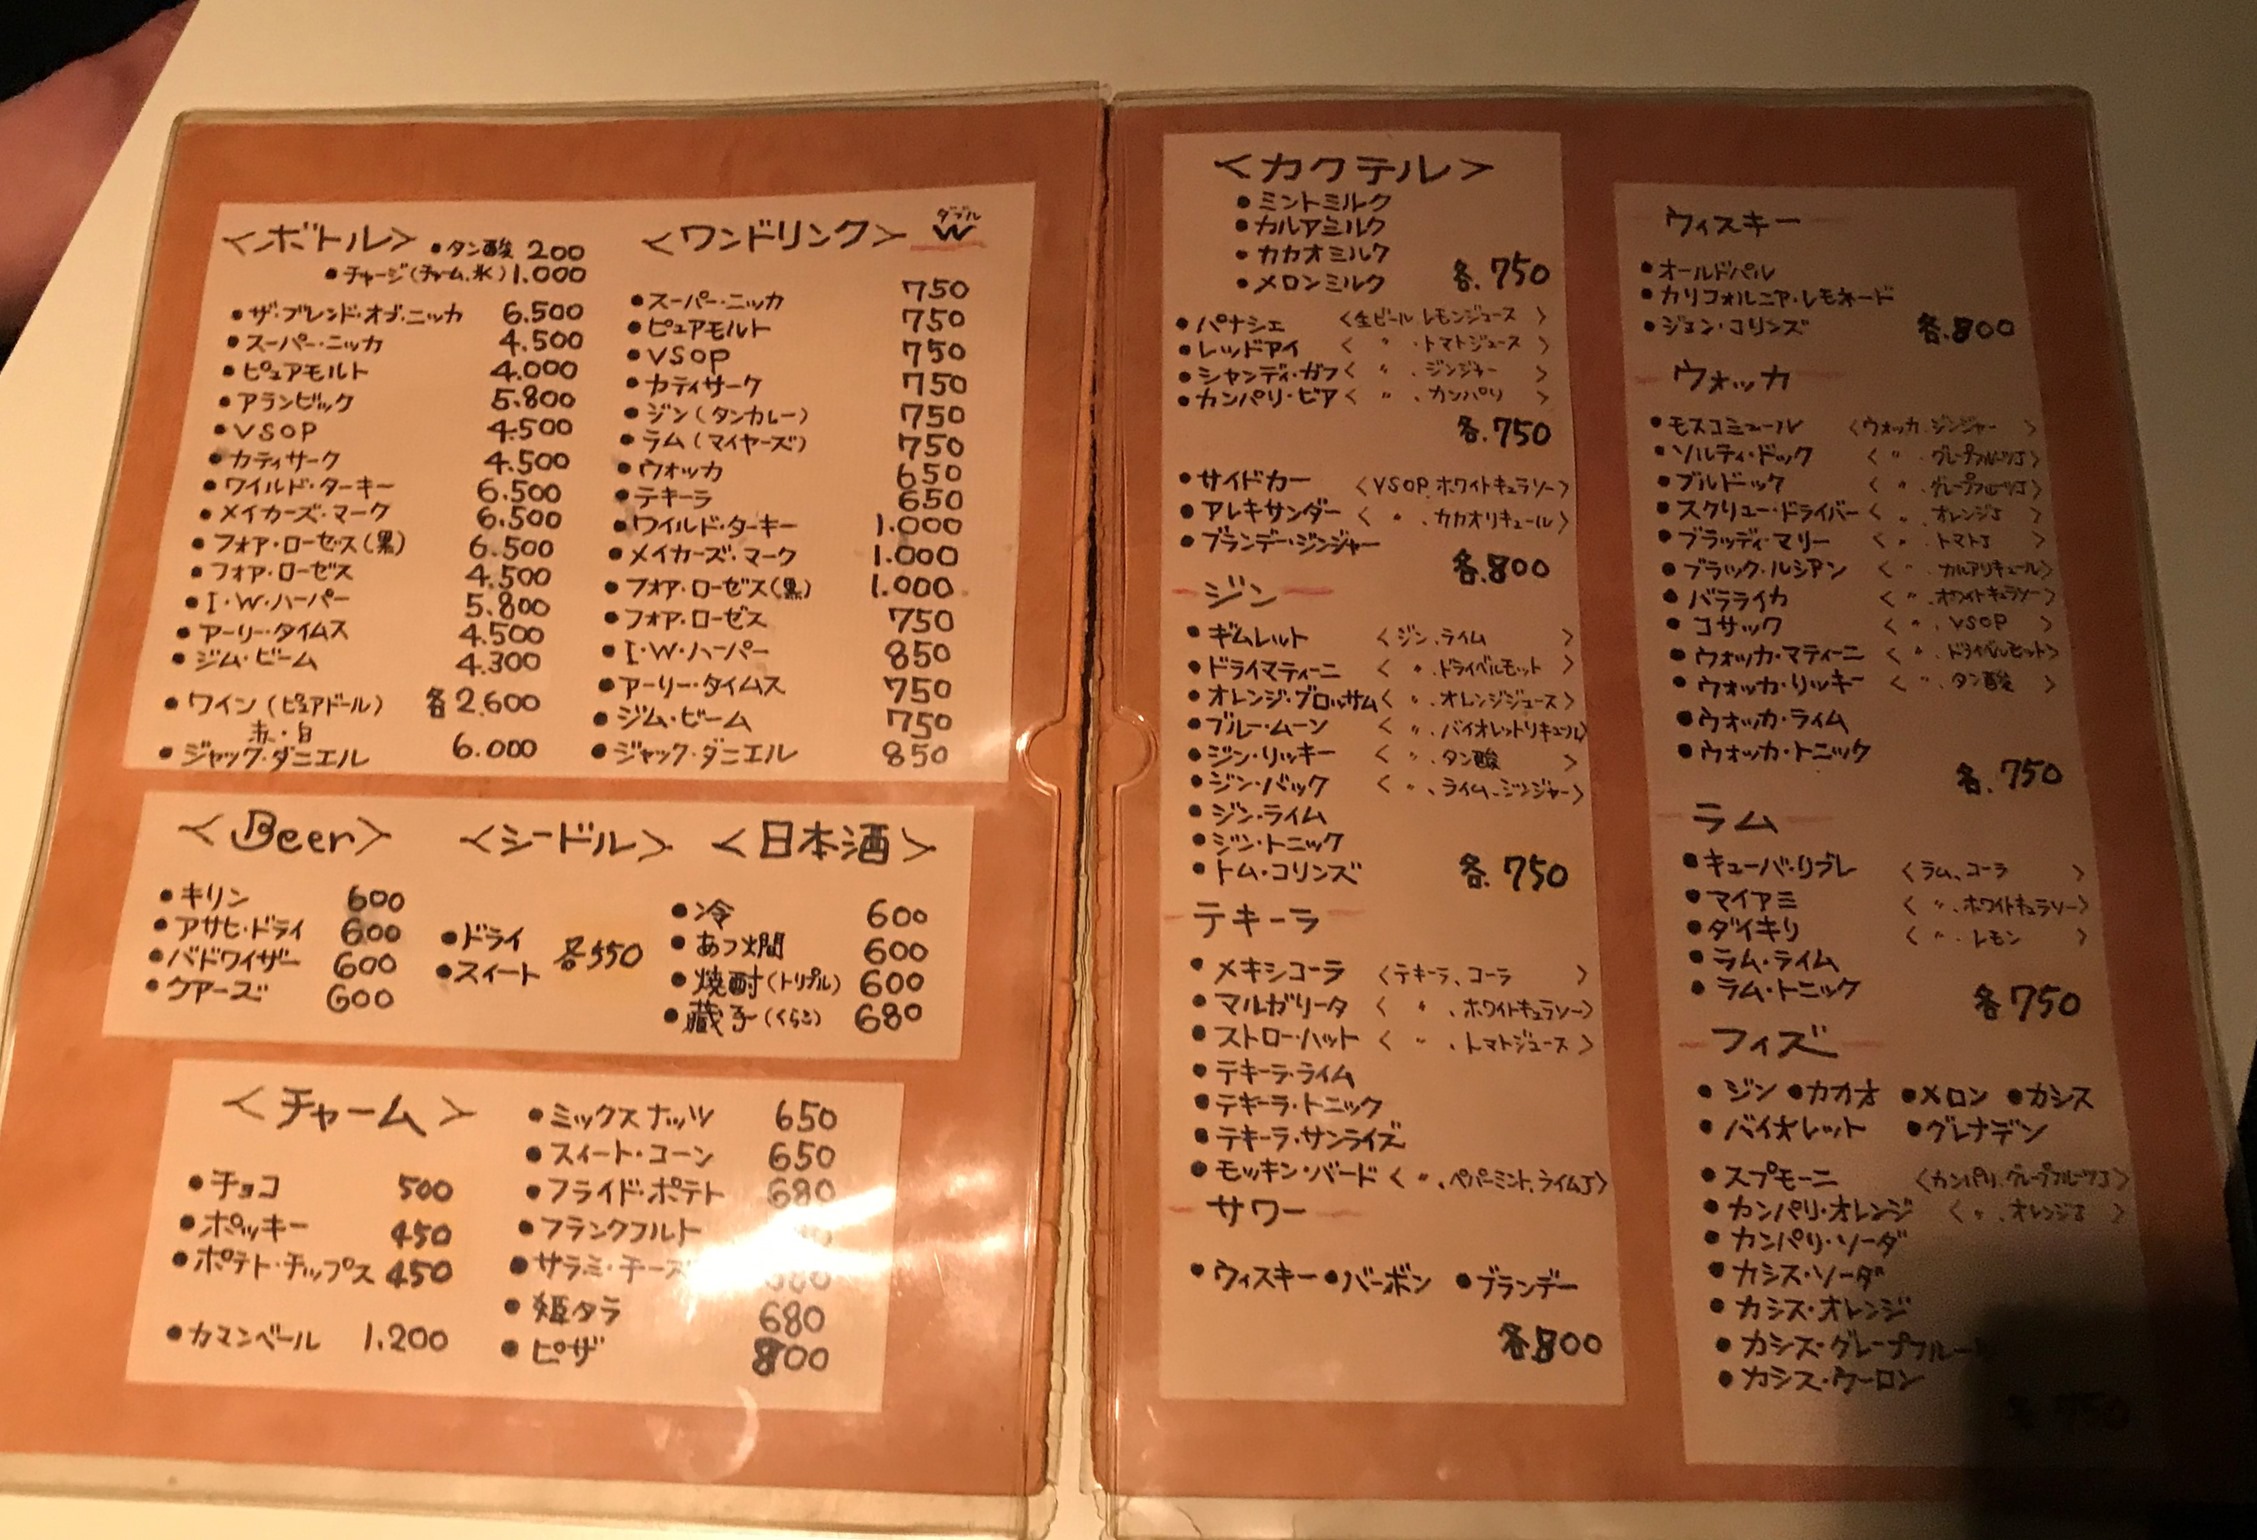 <ボトル> ●タン酸 200
●チャージ(チャーム,氷) 1.000
●ザ・ブレンド・オブ・ニッカ 6.500
●スーパー・ニッカ 4.500
●ピュアモルト 4.000
●アランビック 5.800
●VSOP 4.500
●カティサーク 4.500
●ワイルド・ターキー 6.500
●メイカーズ・マーク 6.500
●フォア・ローゼス(黒) 6.500
●フォア・ローゼス 4.500
●I・W・ハーパー 5.800
●アーリー・タイムス 4.500
●ジム・ビーム 4.300
●ワイン(ピュアドール) 各2.600
赤・白
●ジャック・ダニエル 6.000
<ワンドリンク> ダブル W
●スーパー・ニッカ 750
●ピュアモルト 750
●VSOP 750
●カティサーク 750
●ジン(タンカレー) 750
●ラム(マイヤーズ) 750
●ウォッカ 650
●テキーラ 650
●ワイルド・ターキー 1.000
●メイカーズ・マーク 1.000
●フォア・ローゼス(黒) 1.000
●フォア・ローゼス 750
●I・W・ハーパー 850
●アーリー・タイムス 750
●ジム・ビーム 750
●ジャック・ダニエル 850
<Beer>
●キリン 600
●アサヒ・ドライ 600
●バドワイザー 600
●クアーズ 600
<シードル>
●ドライ
●スイート 各550
<日本酒>
●冷 600
●あつ燗 600
●焼酎(トリプル) 600
●蔵子(くらこ) 680
<チャーム>
●チョコ 500
●ポッキー 450
●ポテト・チップス 450
●カマンベール 1.200
●ミックスナッツ 650
●スイート・コーン 650
●フライド・ポテト 680
●フランクフルト
●サラミ・チーズ 680
●姫タラ 680
●ピザ 800
<カクテル>
●ミントミルク
●カルアミルク
●カカオミルク
●メロンミルク 各.750
●パナシェ <生ビール レモンジュース>
●レッドアイ < 〃 ・トマトジュース>
●シャンディ・ガフ < 〃 、ジンジャー>
●カンパリ・ビア < 〃 、カンパリ>
各.750
●サイドカー <VSOP.ホワイトキュラソー>
●アレキサンダー < 〃 、カカオリキュール>
●ブランデー・ジンジャー
各.800
ジン
●ギムレット <ジン、ライム>
●ドライマティーニ < 〃 、ドライベルモット>
●オレンジ・ブロッサム < 〃 、オレンジジュース>
●ブルー・ムーン < 〃 、バイオレットリキュール>
●ジン・リッキー < 〃 、タン酸>
●ジン・バック < 〃 、ライム、ジンジャー>
●ジン・ライム
●ジン・トニック
●トム・コリンズ 各.750
テキーラ
●メキシコーラ <テキーラ、コーラ>
●マルガリータ < 〃 、ホワイトキュラソー>
●ストロー・ハット < 〃 、トマトジュース>
●テキーラ・ライム
●テキーラ・トニック
●テキーラ・サンライズ
●モッキン・バード < 〃 、ペパーミント、ライムJ>
サワー
●ウィスキー ●バーボン ●ブランデー
各.800
ウィスキー
●オールドパル
●カリフォルニア・レモネード
●ジョン・コリンズ 各.800
ウォッカ
●モスコミュール <ウォッカ.ジンジャー>
●ソルティ・ドック < 〃 、グレープフルーツJ>
●ブルドック < 〃 、グレープフルーツJ>
●スクリュー・ドライバー < 〃 、オレンジJ>
●ブラッディ・マリー < 〃 、トマトJ>
●ブラック・ルシアン < 〃 、カルアリキュール>
●バラライカ < 〃 、ホワイトキュラソー>
●コサック < 〃 、VSOP>
●ウォッカ・マティーニ < 〃 、ドライベルモット>
●ウォッカ・リッキー < 〃 、タン酸>
●ウォッカ・ライム
●ウォッカ・トニック
各.750
ラム
●キューバ・リブレ <ラム、コーラ>
●マイアミ < 〃 、ホワイトキュラソー>
●ダイキリ < 〃 、レモン>
●ラム・ライム
●ラム・トニック 各750
フィズ
●ジン ●カカオ ●メロン ●カシス
●バイオレット ●グレナデン
●スプモーニ <カンパリ、グレープフルーツJ>
●カンパリ・オレンジ < 〃 、オレンジJ>
●カンパリ・ソーダ
●カシス・ソーダ
●カシス・オレンジ
●カシス・グレープフルーツ
●カシス・ウーロン
各750